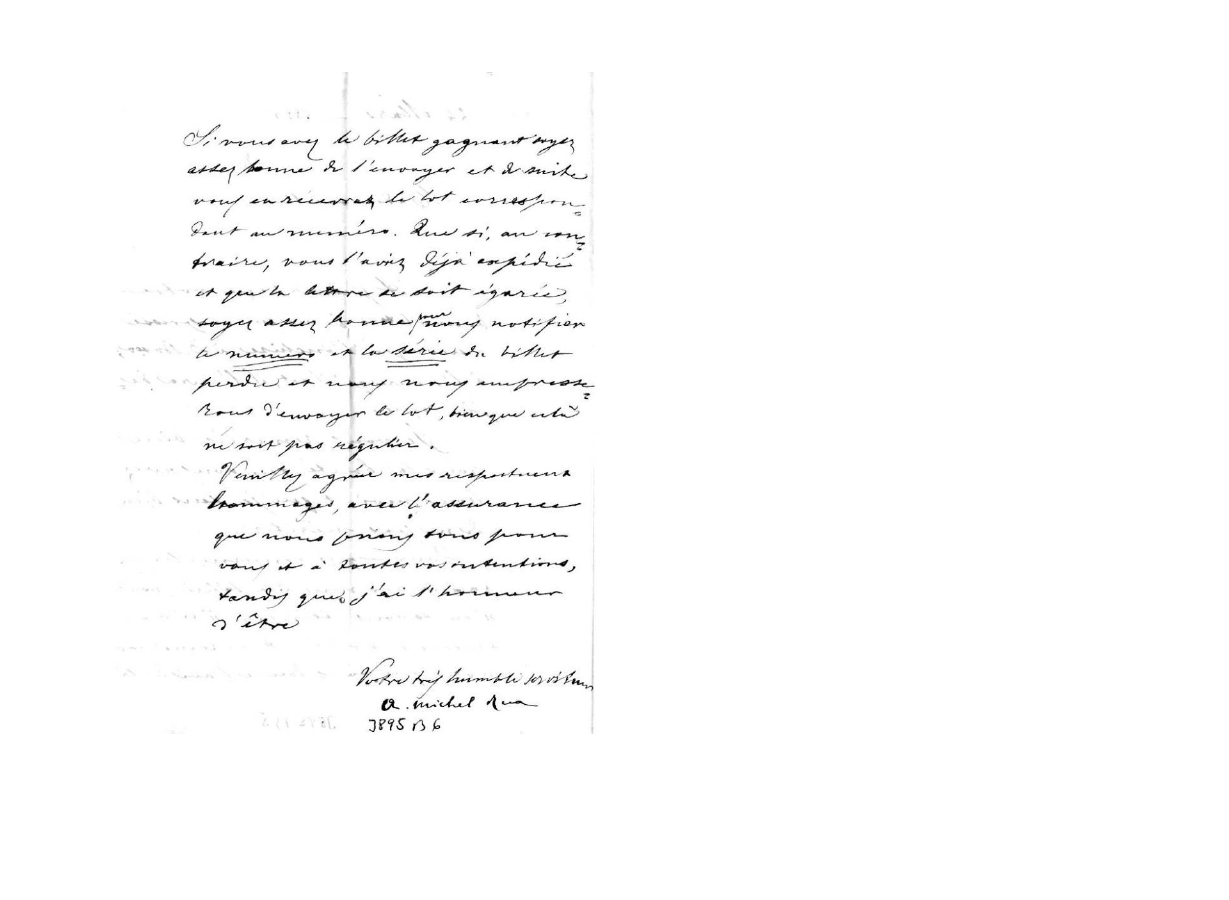 Si vous avez le billet gagnant soyez
assez bonne de l'envoyer et de suite
vous en recevrez le lot correspon=
dant au numéro. Que si, au con=
traire, vous l'aviez déjà expédié
et que la lettre se soit égarée,
soyez assez bonne pour nous notifier
le numéro et la série du billet
perdu et nous nous empresse=
rons d'envoyer le lot, bien que celà
ne soit pas régulier.
Veuillez agréer mes respectueux
hommages, avec l'assurance
que nous prions tous pour
vous et à toutes vos intentions,
tandis que j'ai l'honneur
d'être
Votre très humble serviteur
a. michel Rua
3895 B 6